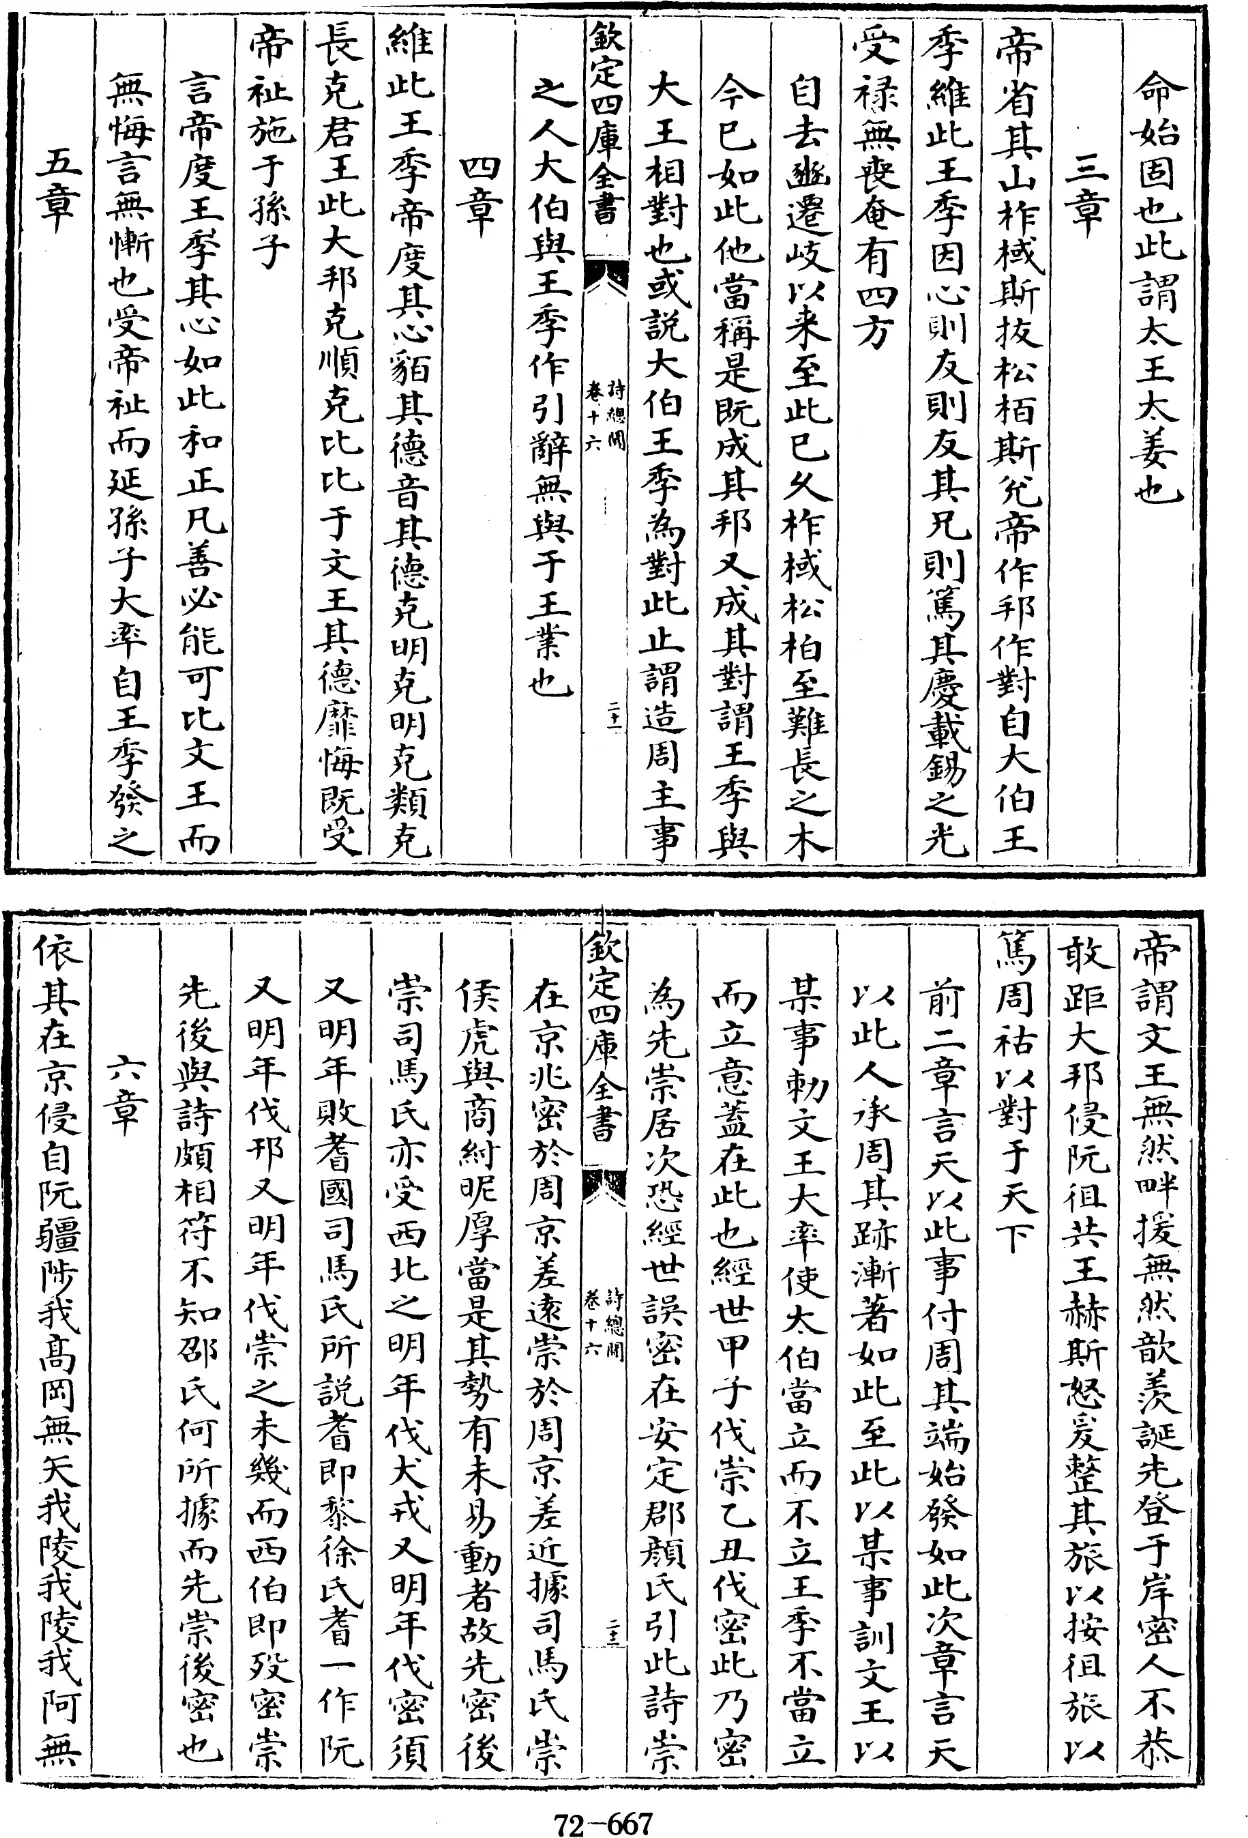 命始固也此謂太王太姜也
三章
帝省其山柞棫斯拔松栢斯兊帝作邦作對自大伯王
季維此王季因心則友則友其兄則篤其慶載錫之光
受禄無喪奄有四方
自去豳遷岐以来至此已久柞棫松柏至難長之木
今已如此他當稱是既成其邦又成其對謂王季與
大王相對也或説大伯王季為對此止謂造周主事
欽定四庫全書
詩總聞
卷十六
二十一
之人大伯與王季作引辭無與于王業也
四章
維此王季帝度其心貊其德音其德克明克明克類克
長克君王此大邦克順克比比于文王其德靡悔既受
帝祉施于孫子
言帝度王季其心如此和正凡善必能可比文王而
無悔言無慚也受帝祉而延孫子大率自王季發之
五章
帝謂文王無然畔援無然歆羡誕先登于岸密人不恭
敢距大邦侵阮徂共王赫斯怒爰整其旅以按徂旅以
篤周祜以對于天下
前二章言天以此事付周其端始發如此次章言天
以此人承周其跡漸著如此至此以某事訓文王以
某事勅文王大率使太伯當立而不立王季不當立
而立意蓋在此也經世甲子伐崇乙丑伐密此乃密
為先崇居次恐經世誤密在安定郡顔氏引此詩崇
欽定四庫全書
詩總聞
卷十六
二十二
在京兆密於周京差逺崇於周京差近據司馬氏崇
侯虎與商紂昵厚當是其勢有未易動者故先密後
崇司馬氏亦受西北之明年伐犬戎又明年伐密須
又明年敗耆國司馬氏所説耆即黎徐氏耆一作阮
又明年伐邘又明年伐崇之未幾而西伯即歿密崇
先後與詩頗相符不知邵氏何所據而先崇後密也
六章
依其在京侵自阮疆陟我髙岡無矢我陵我陵我阿無
72-667